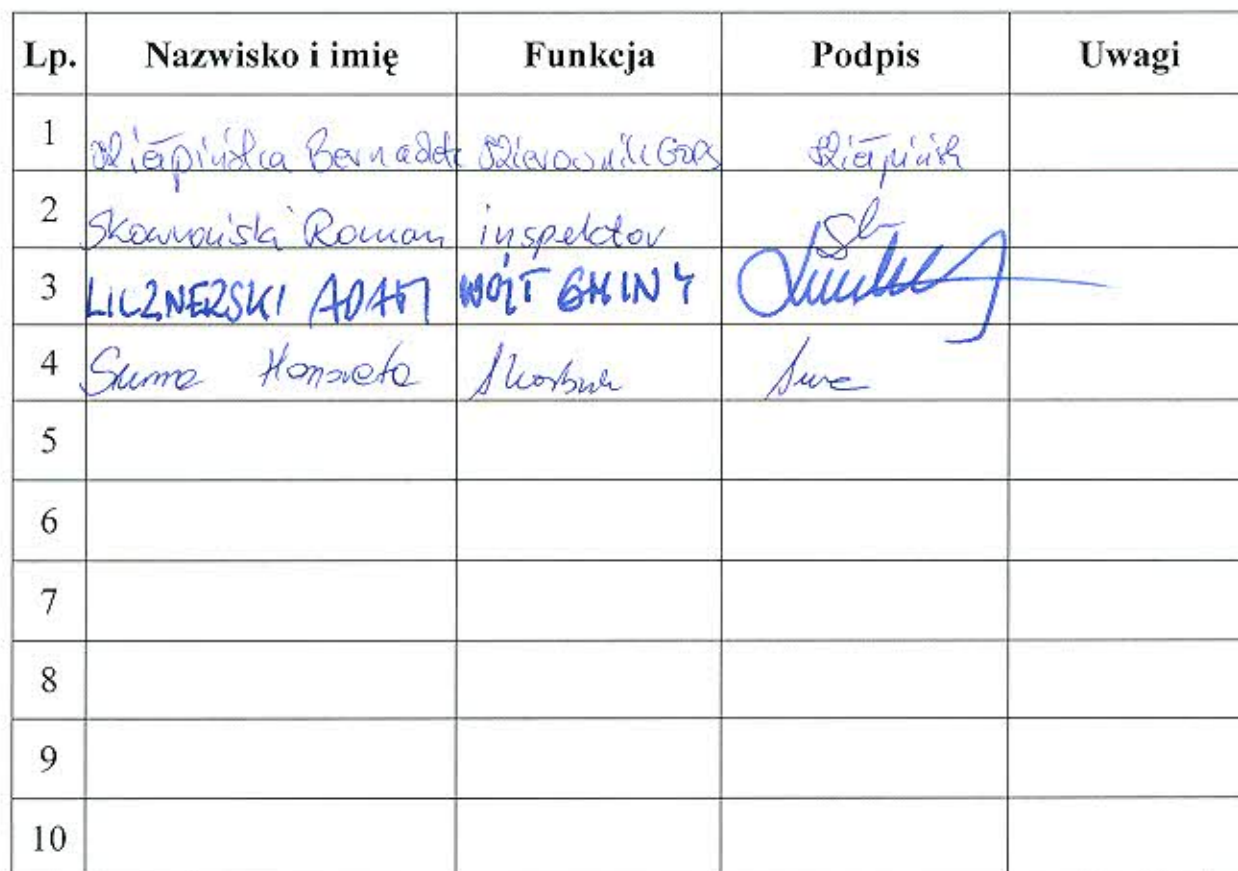 Lp. Nazwisko i imię Funkcja Podpis Uwagi
1 Kiełpińska Bernadeta Kierownik GOPS Kiełpińsk
2 Skowroński Roman inspektor
3 LICZNERSKI ADAM WÓJT GMINY
4 Honorata Skarbnik
5
6
7
8
9
10